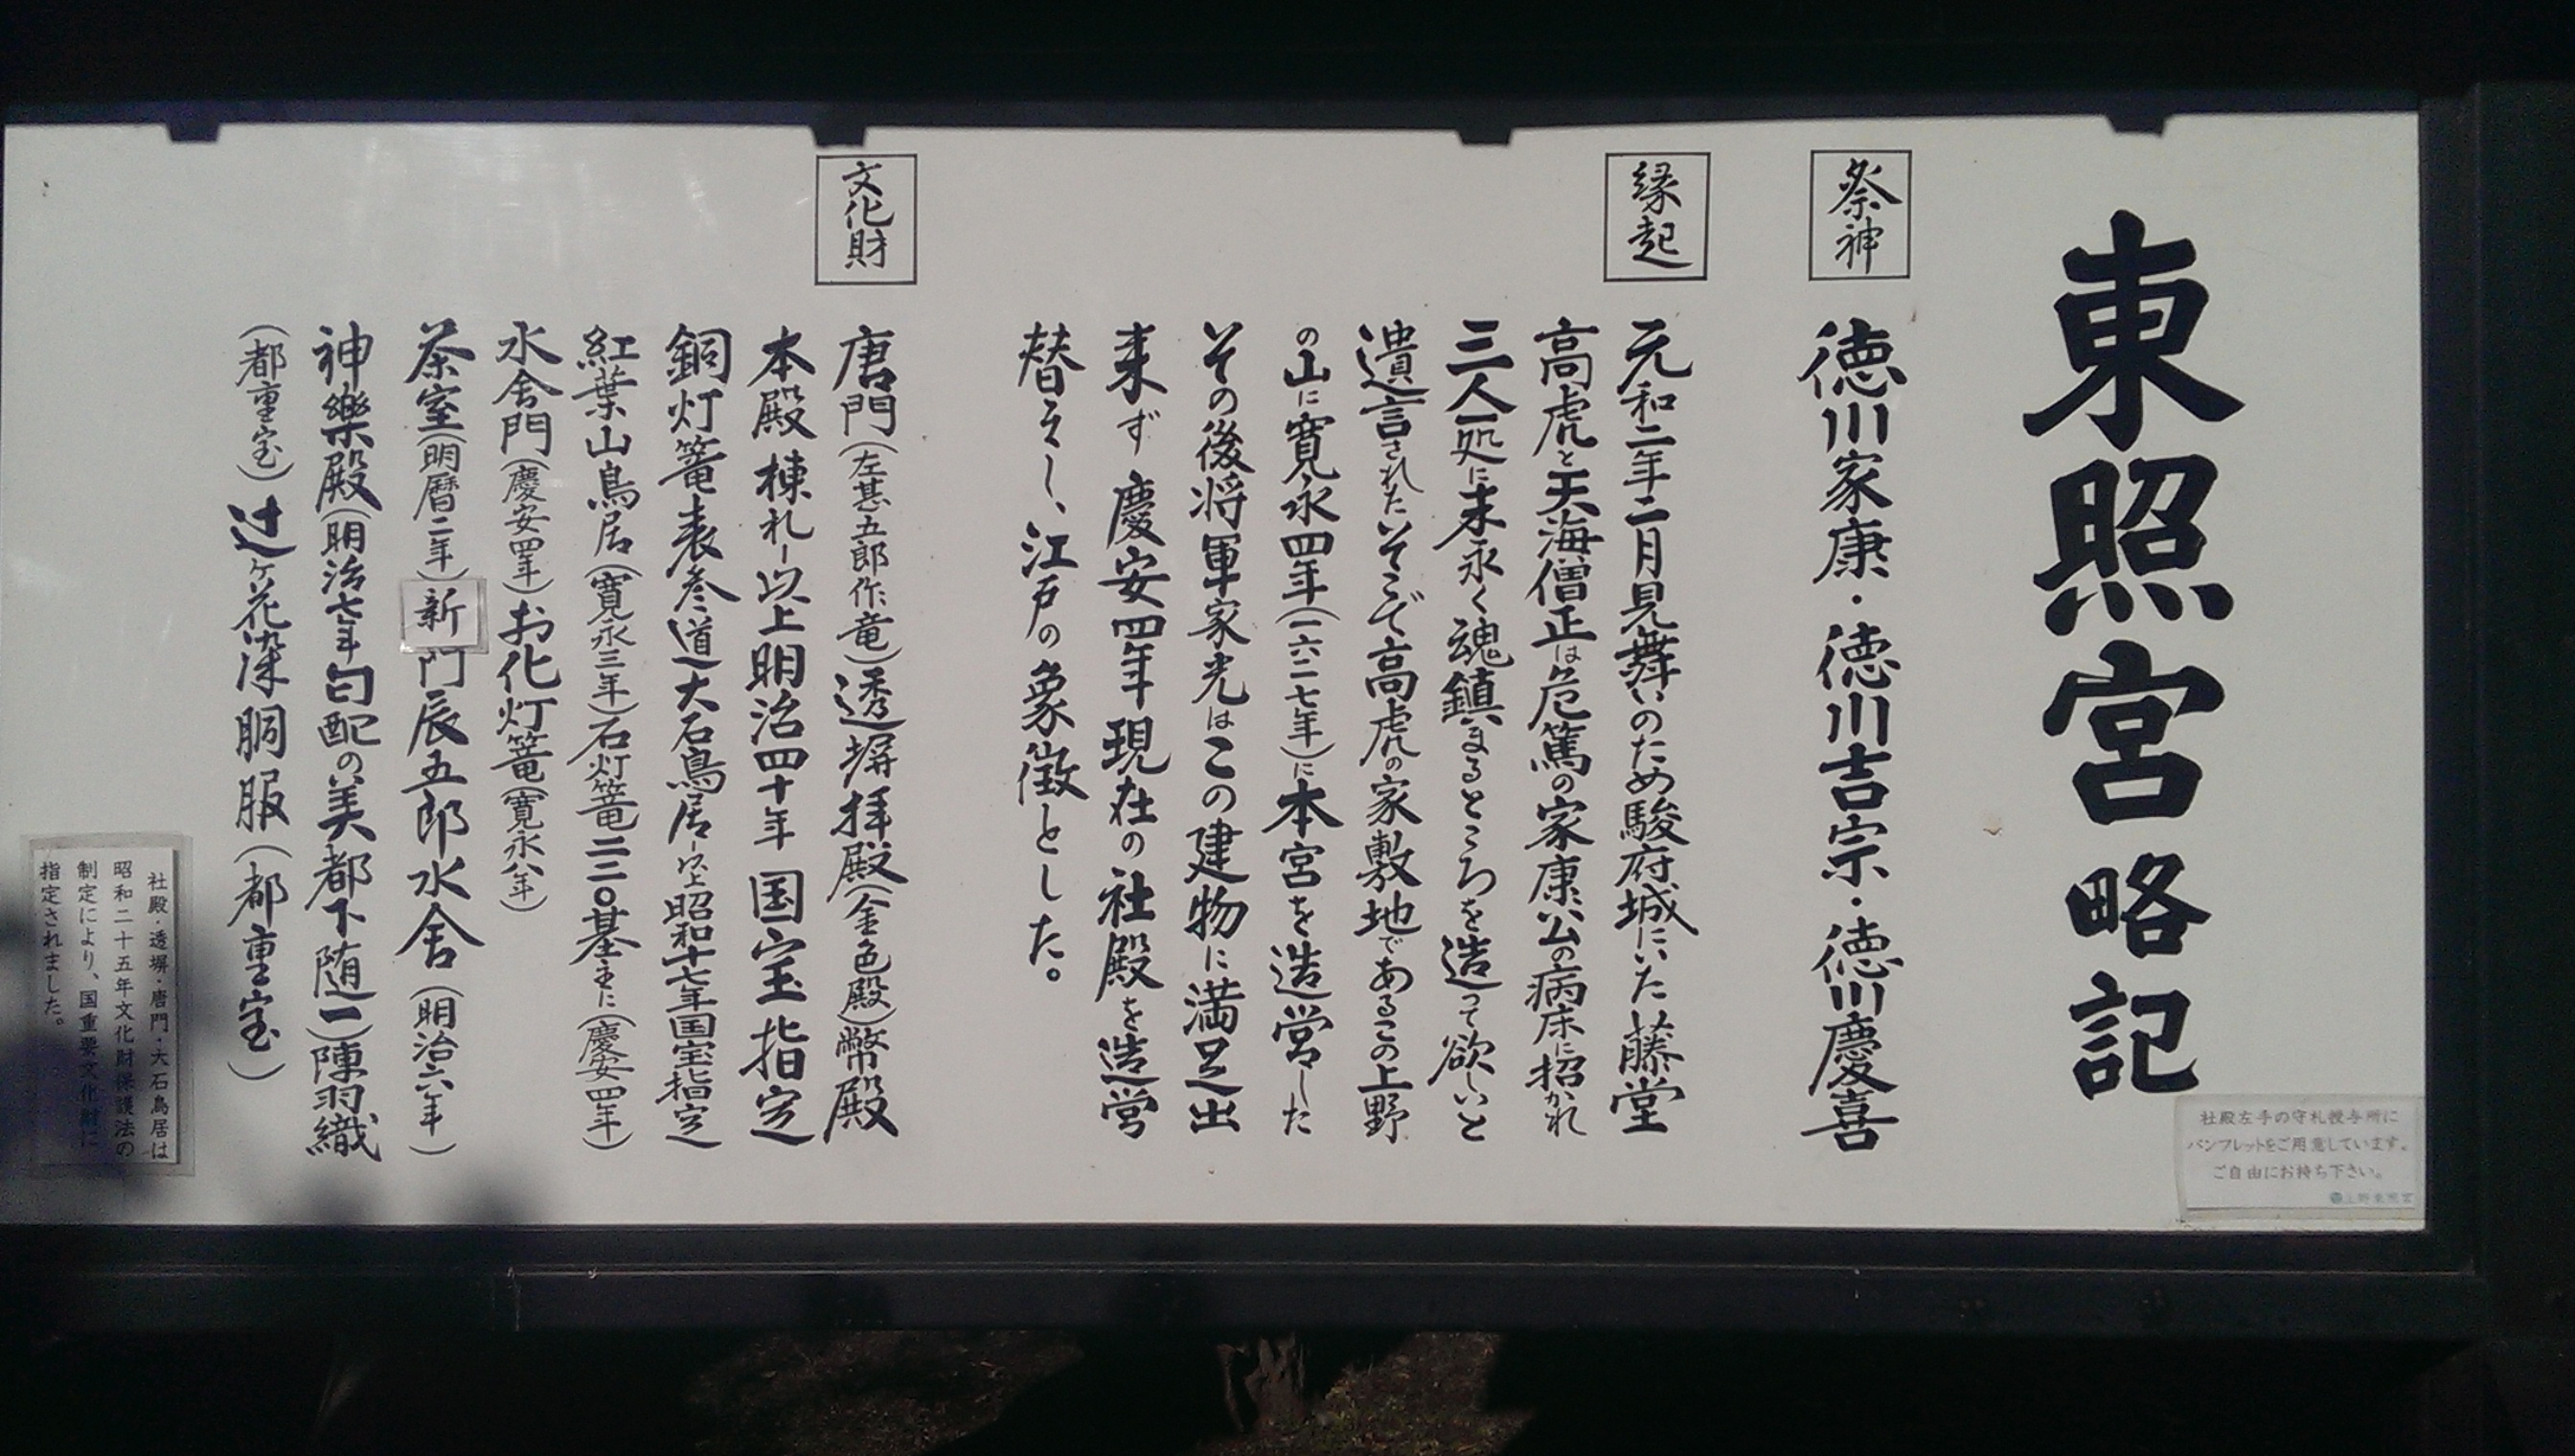 東照宮略記
祭神
徳川家康・徳川吉宗・徳川慶喜
縁起
元和二年二月見舞いのため駿府城にいた藤堂
高虎と天海僧正は危篤の家康公の病床に招かれ
三人一処に末永く魂鎮まるところを造って欲しいと
遺言されたそこで高虎の家敷地であるこの上野
の山に寛永四年(一六二七年)に本宮を造営した
その後将軍家光はこの建物に満足出
来ず慶安四年現在の社殿を造営
替えし、江戸の象徴とした。
文化財
唐門(左甚五郎作竜)透塀拝殿(金色殿)幣殿
本殿棟札 以上明治四十年国宝指定
銅灯篭表参道大石鳥居 以上昭和十七年国宝指定
紅葉山鳥居(寛永三年)石灯篭二二〇基主に(慶安四年)
水舎門(慶安四年)お化灯篭(寛永八年)
茶室(明暦二年)新門辰五郎水舎(明治六年)
神樂殿(明治七年匂配の美都下随一)陣羽織
(都重宝)辻ヶ花染胴服(都重宝)
社殿・透塀・唐門・大石鳥居は
昭和二十五年文化財保護法の
制定により、国重要文化財に
指定されました。
社殿左手の守札授与所に
パンフレットをご用意しています。
ご自由にお持ち下さい。
上野東照宮